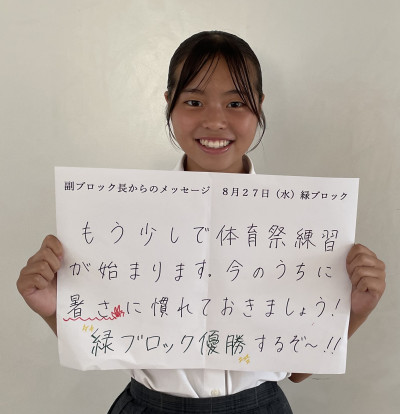 副ブロック長からのメッセージ　8月27日（水）緑ブロック
もう少しで体育祭練習
が始まります。今のうちに
暑さに慣れておきましょう!
緑ブロック優勝するぞ〜!!